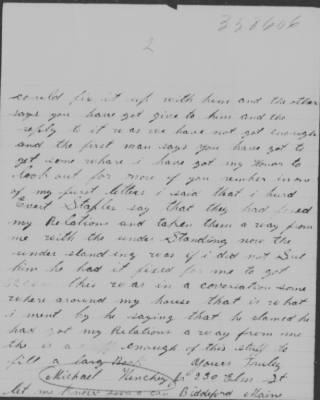 350606
2
could fix it up with him and the other
says you have got give to him and the
reply to it was we have not got enough
and the first man says you have got to
get some whare i have got my to
look out for more if you in one
of my first letters i said that i hurd
Evert Stapler say that they had fixed
my Relations and taken them a way from
me with the under Standing now the
under standing was if i did not Sut
him he had it fixed for me to get
this was in a some
where around my house that is what
i ment by he saying that he clamed he
had got my Relations a way from me
the is a enough of this stuff to
fill a large Book yours Truley
Michael 230 Elm St
let me know soon can Biddeford Maine